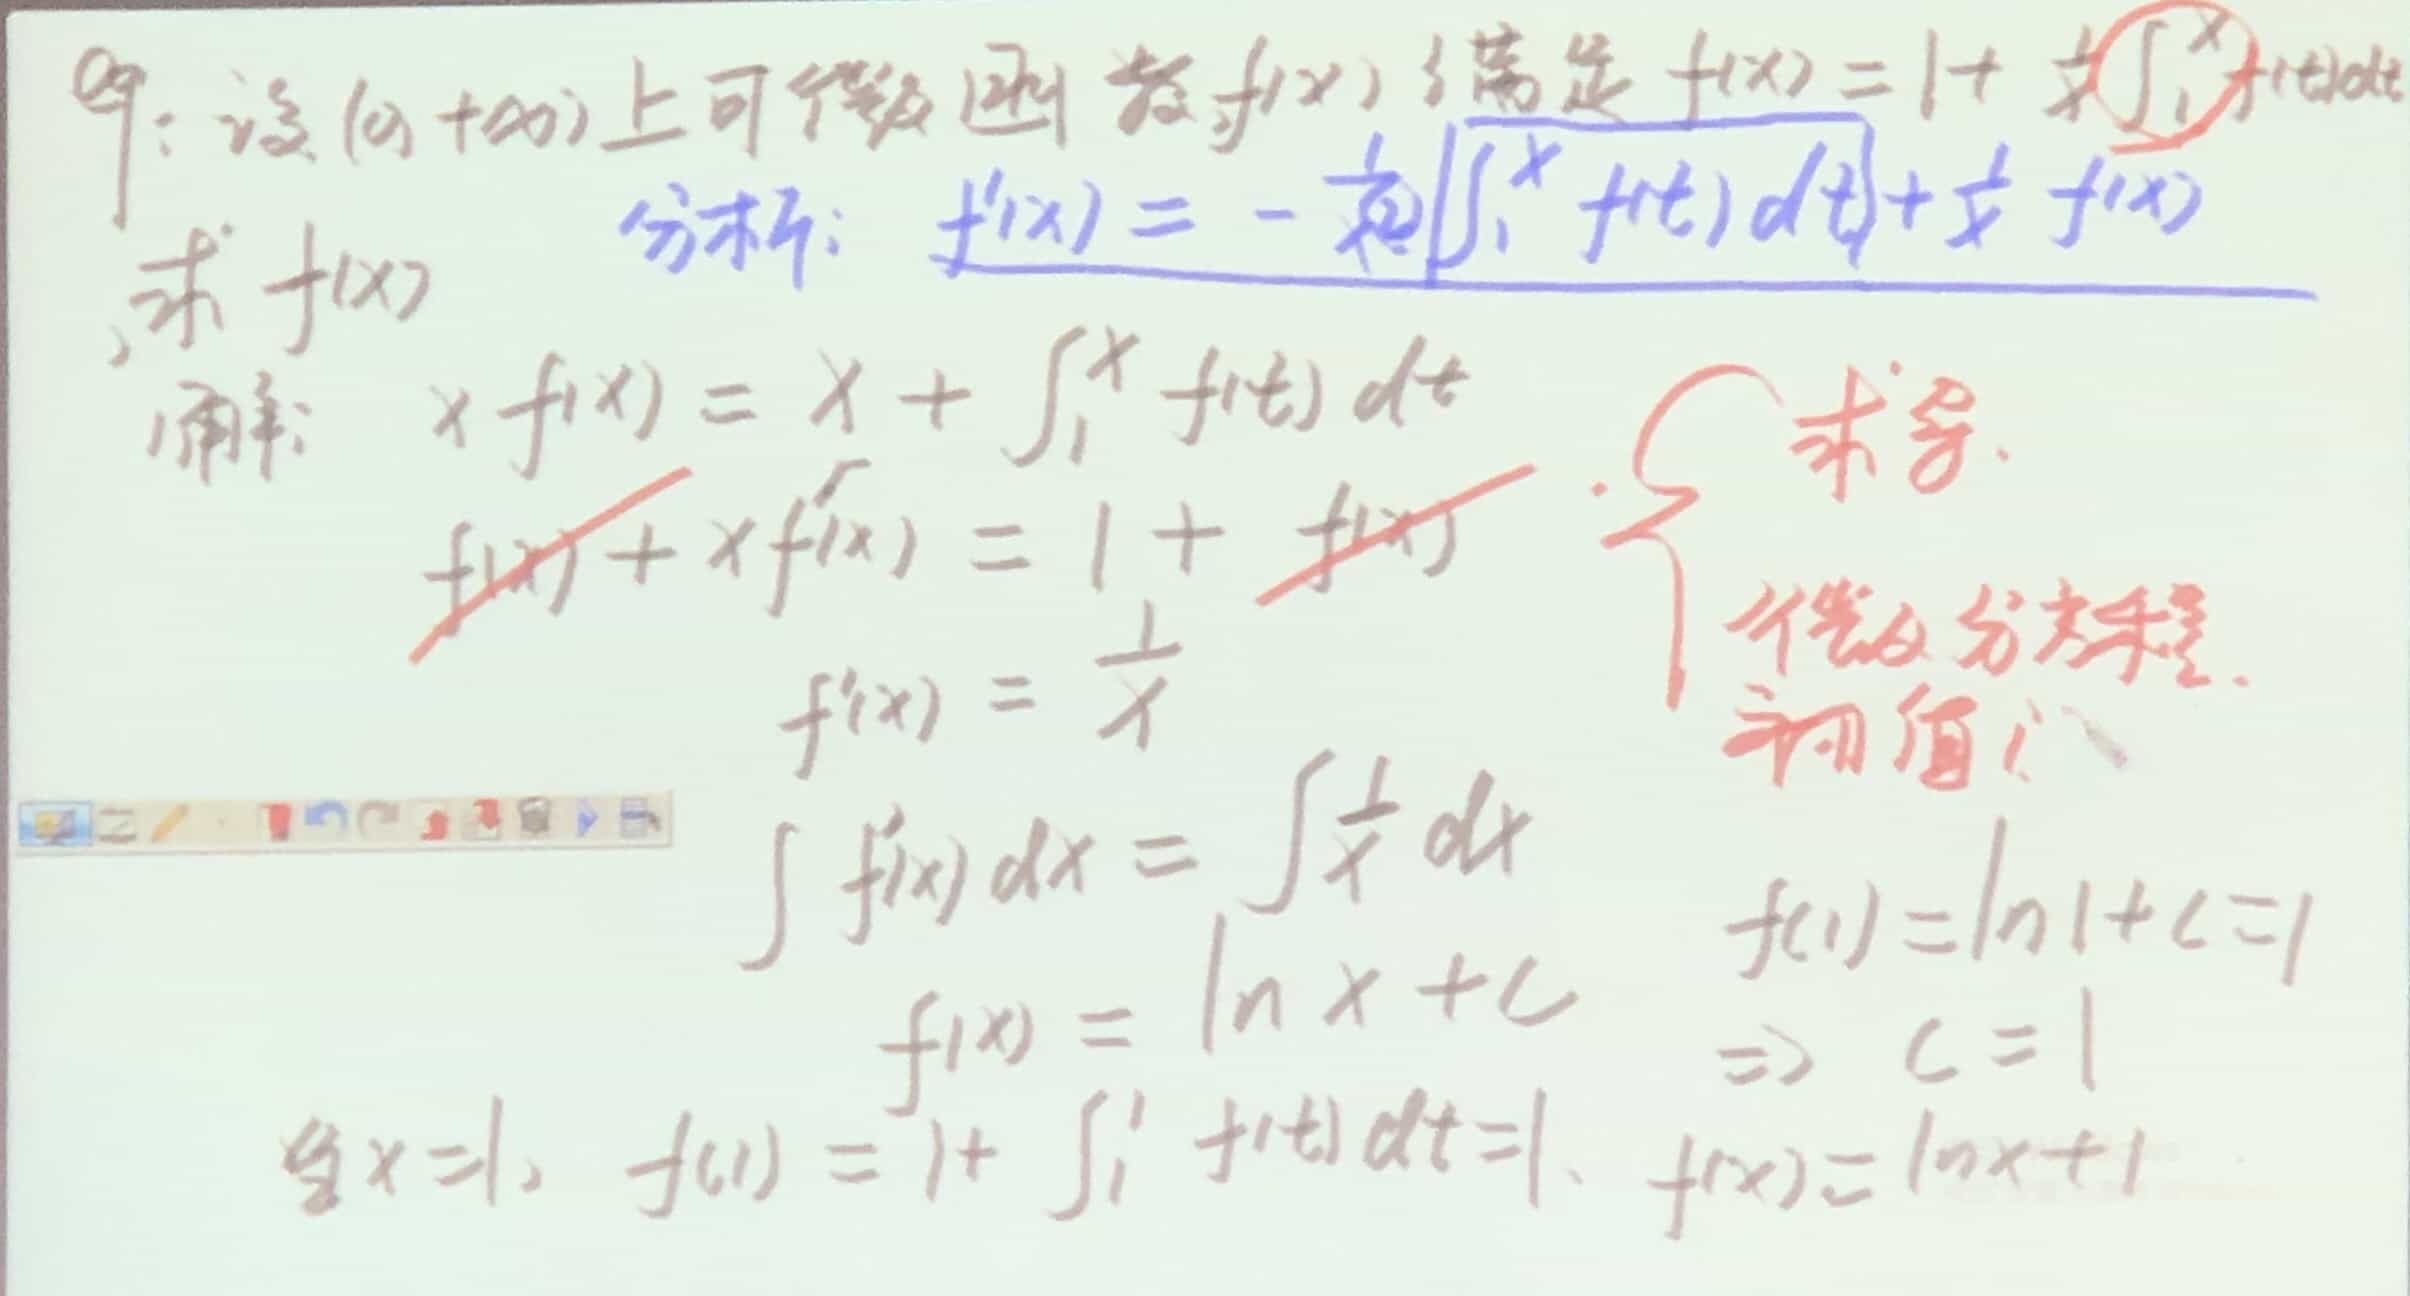 例：设(0,+∞)上可微函数f(x)满足 f(x)=1+1/x∫₁ˣf(t)dt
求 f(x)
分析：f'(x)=-1/x²∫₁ˣf(t)dt+1/x f(x)
解: xf(x)=x+∫₁ˣf(t)dt
f(x)+xf'(x)=1+f(x)
f'(x)=1/x
∫f'(x)dx=∫1/x dx
f(x)=ln x+c
令x=1, f(1)=1+∫₁¹f(t)dt=1.
求导.
微分方程.
初值
f(1)=ln1+c=1
⇒ c=1
f(x)=lnx+1